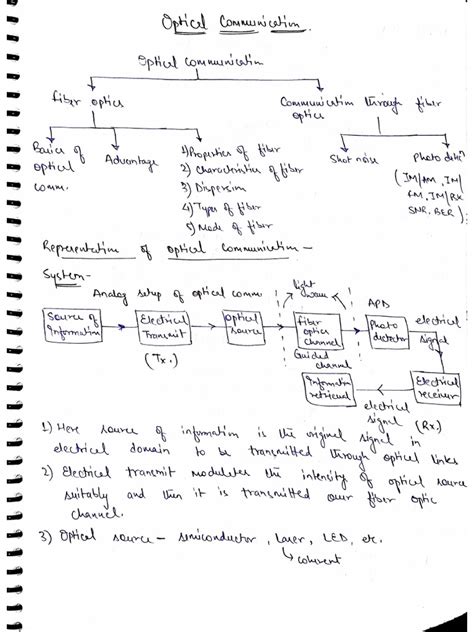 Optical Communication.
Optical communication
fiber optics
Communication through fiber
optics
Basics of
optical
comm.
Advantage
1) Properties of fiber
2) Characteristics of fiber
3) Dispersion
4) Types of fiber
5) Mode of fiber
Shot noise
Photo detn
(IM/AM, IM/
FM, IM/RX
SNR, BER)
Representation of optical Communication –
System-
Analog setup of optical comm
light
wave
Source of
Information
Electrical
Transmit
(Tx.)
optical
source
fiber
optics
channel
Guided
channel
APD
Photo
detector
electrical
signal
Electrical
receiver
(Rx.)
electrical
signal
Information
retrieved
1) Here source of information is the original signal in
electrical domain to be transmitted through optical links
2) Electrical transmit modulates the intensity of optical source
suitably and then it is transmitted over fiber optic
channel.
3) Optical source – semiconductor, laser, LED, etc.
coherent